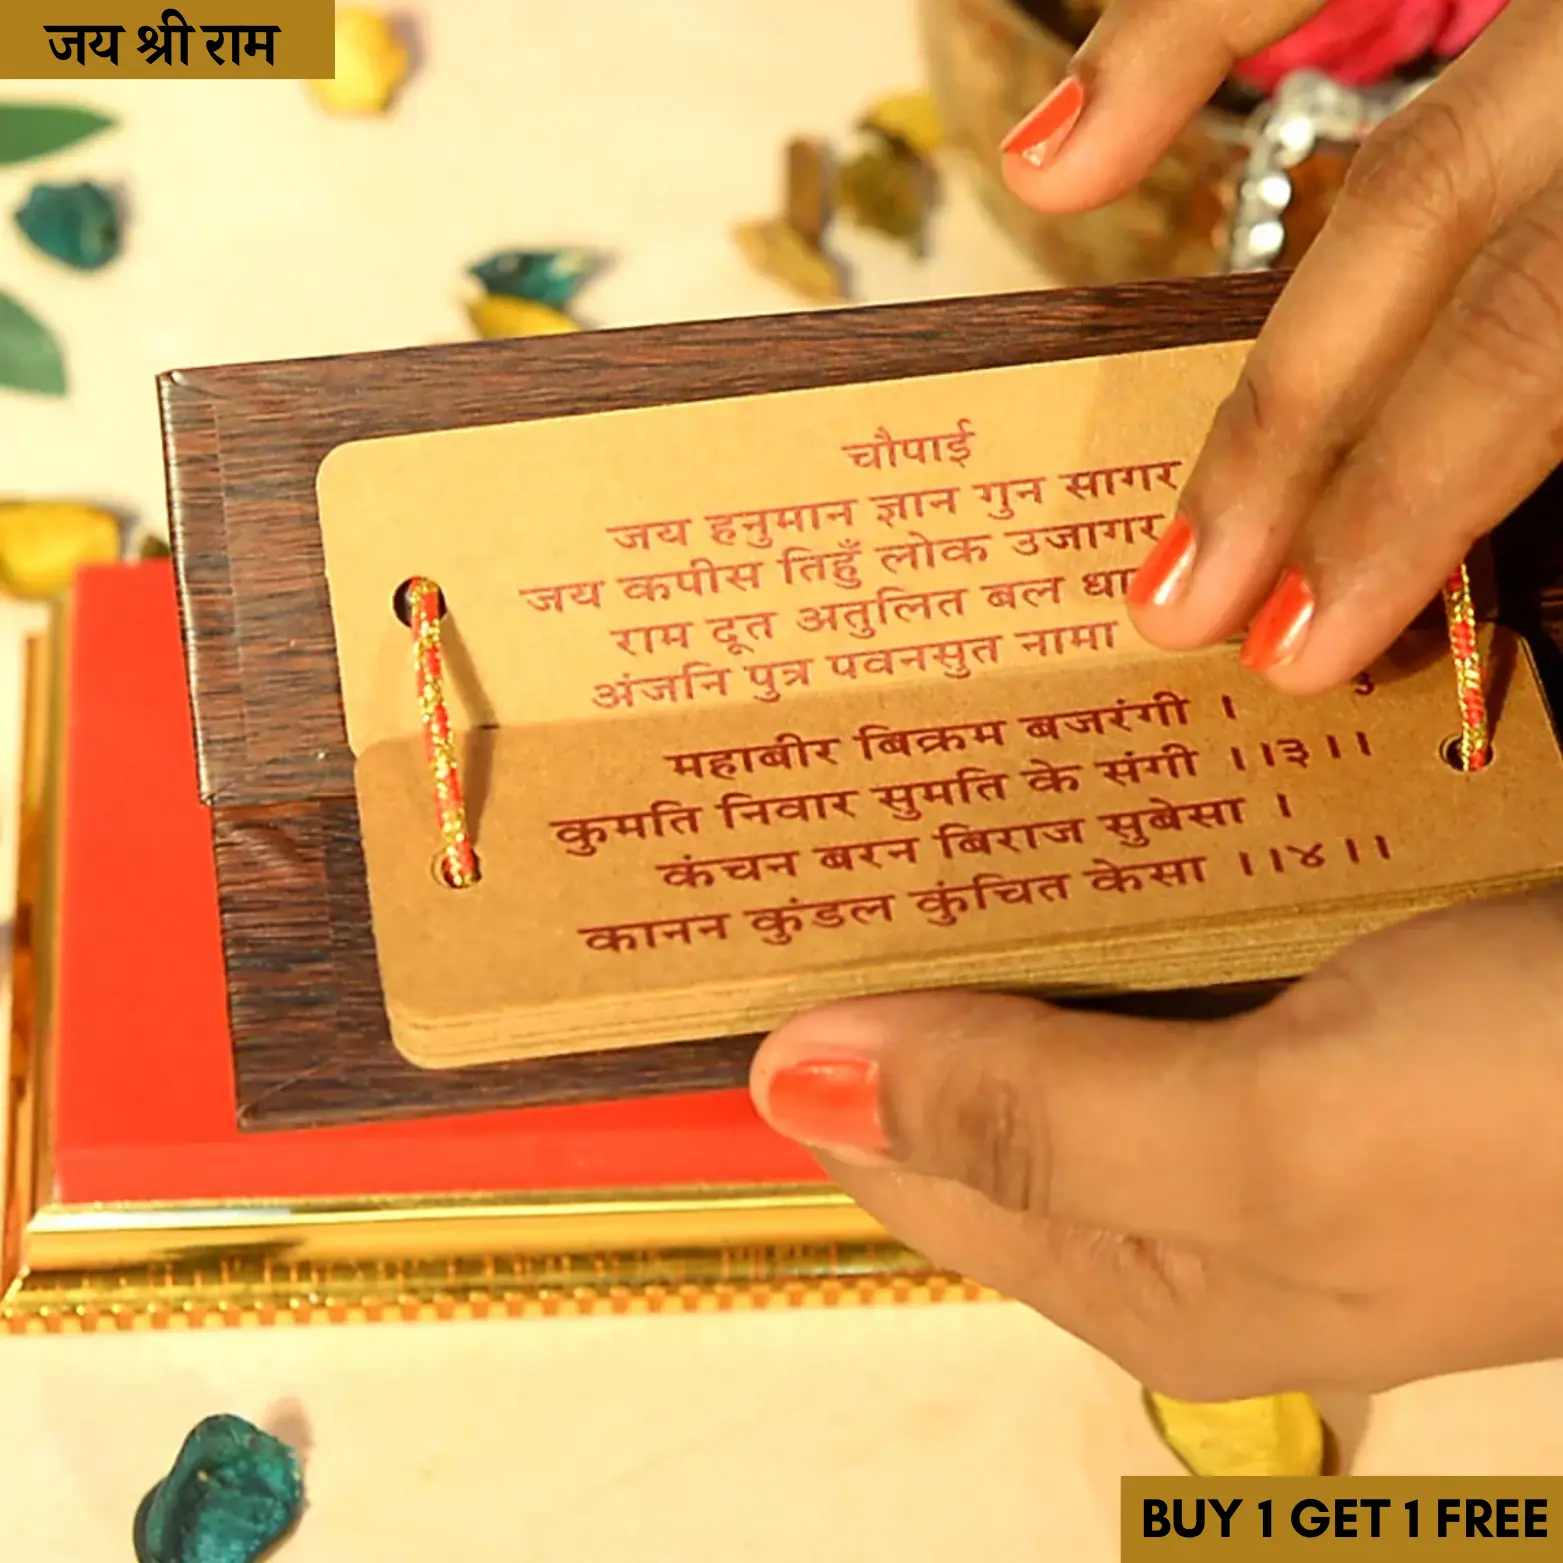 जय श्री राम
चौपाई
जय हनुमान ज्ञान गुन सागर
जय कपीस तिहुँ लोक उजागर
राम दूत अतुलित बल
अंजनि पुत्र पवनसुत नामा
३
महाबीर बिक्रम बजरंगी ।
कुमति निवार सुमति के संगी ।।३।।
कंचन बरन बिराज सुबेसा ।
कानन कुंडल कुंचित केसा ।।४।।
BUY 1 GET 1 FREE